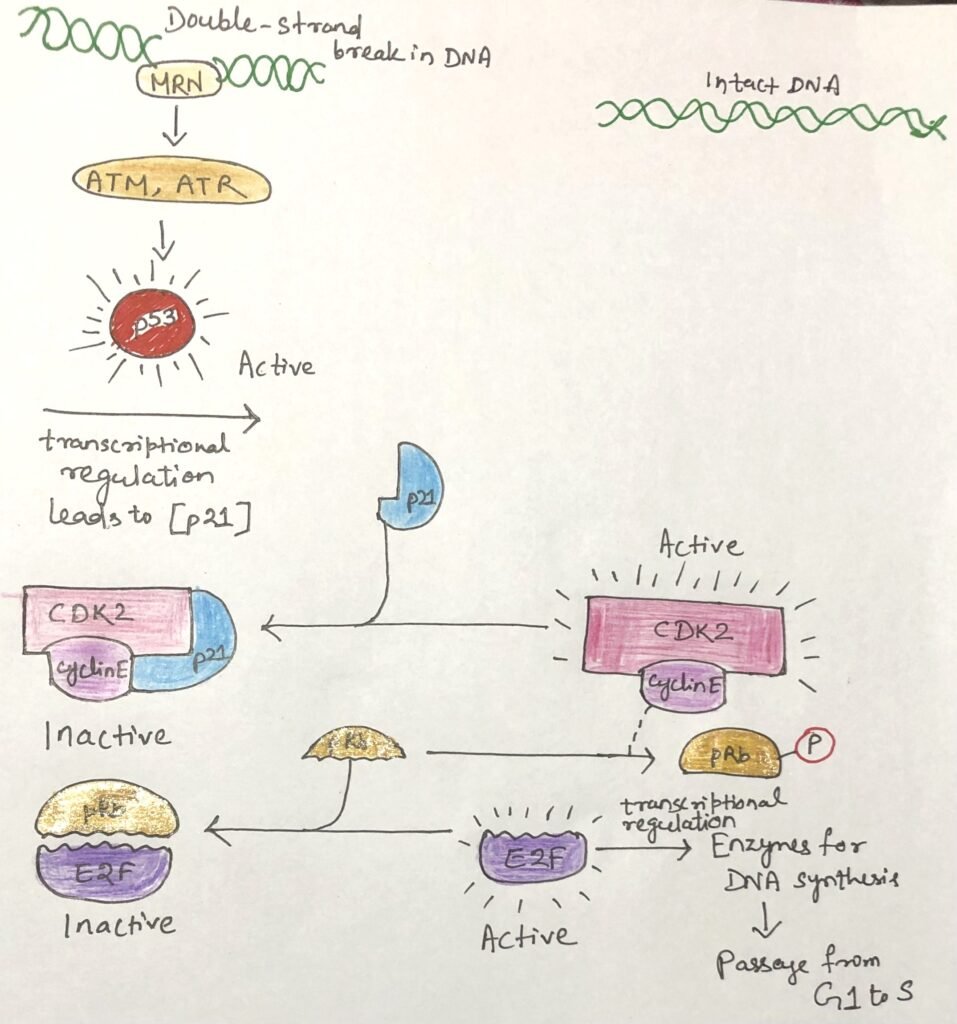 Double-strand
break in DNA
MRN
Intact DNA
ATM, ATR
p53
Active
transcriptional
regulation
leads to [p21]
p21
Active
CDK2
CyclinE
p21
Inactive
CDK2
CyclinE
pRb
pRb
P
pRb
E2F
Inactive
E2F
Active
transcriptional
regulation
Enzymes for
DNA synthesis
Passage from
G1 to S